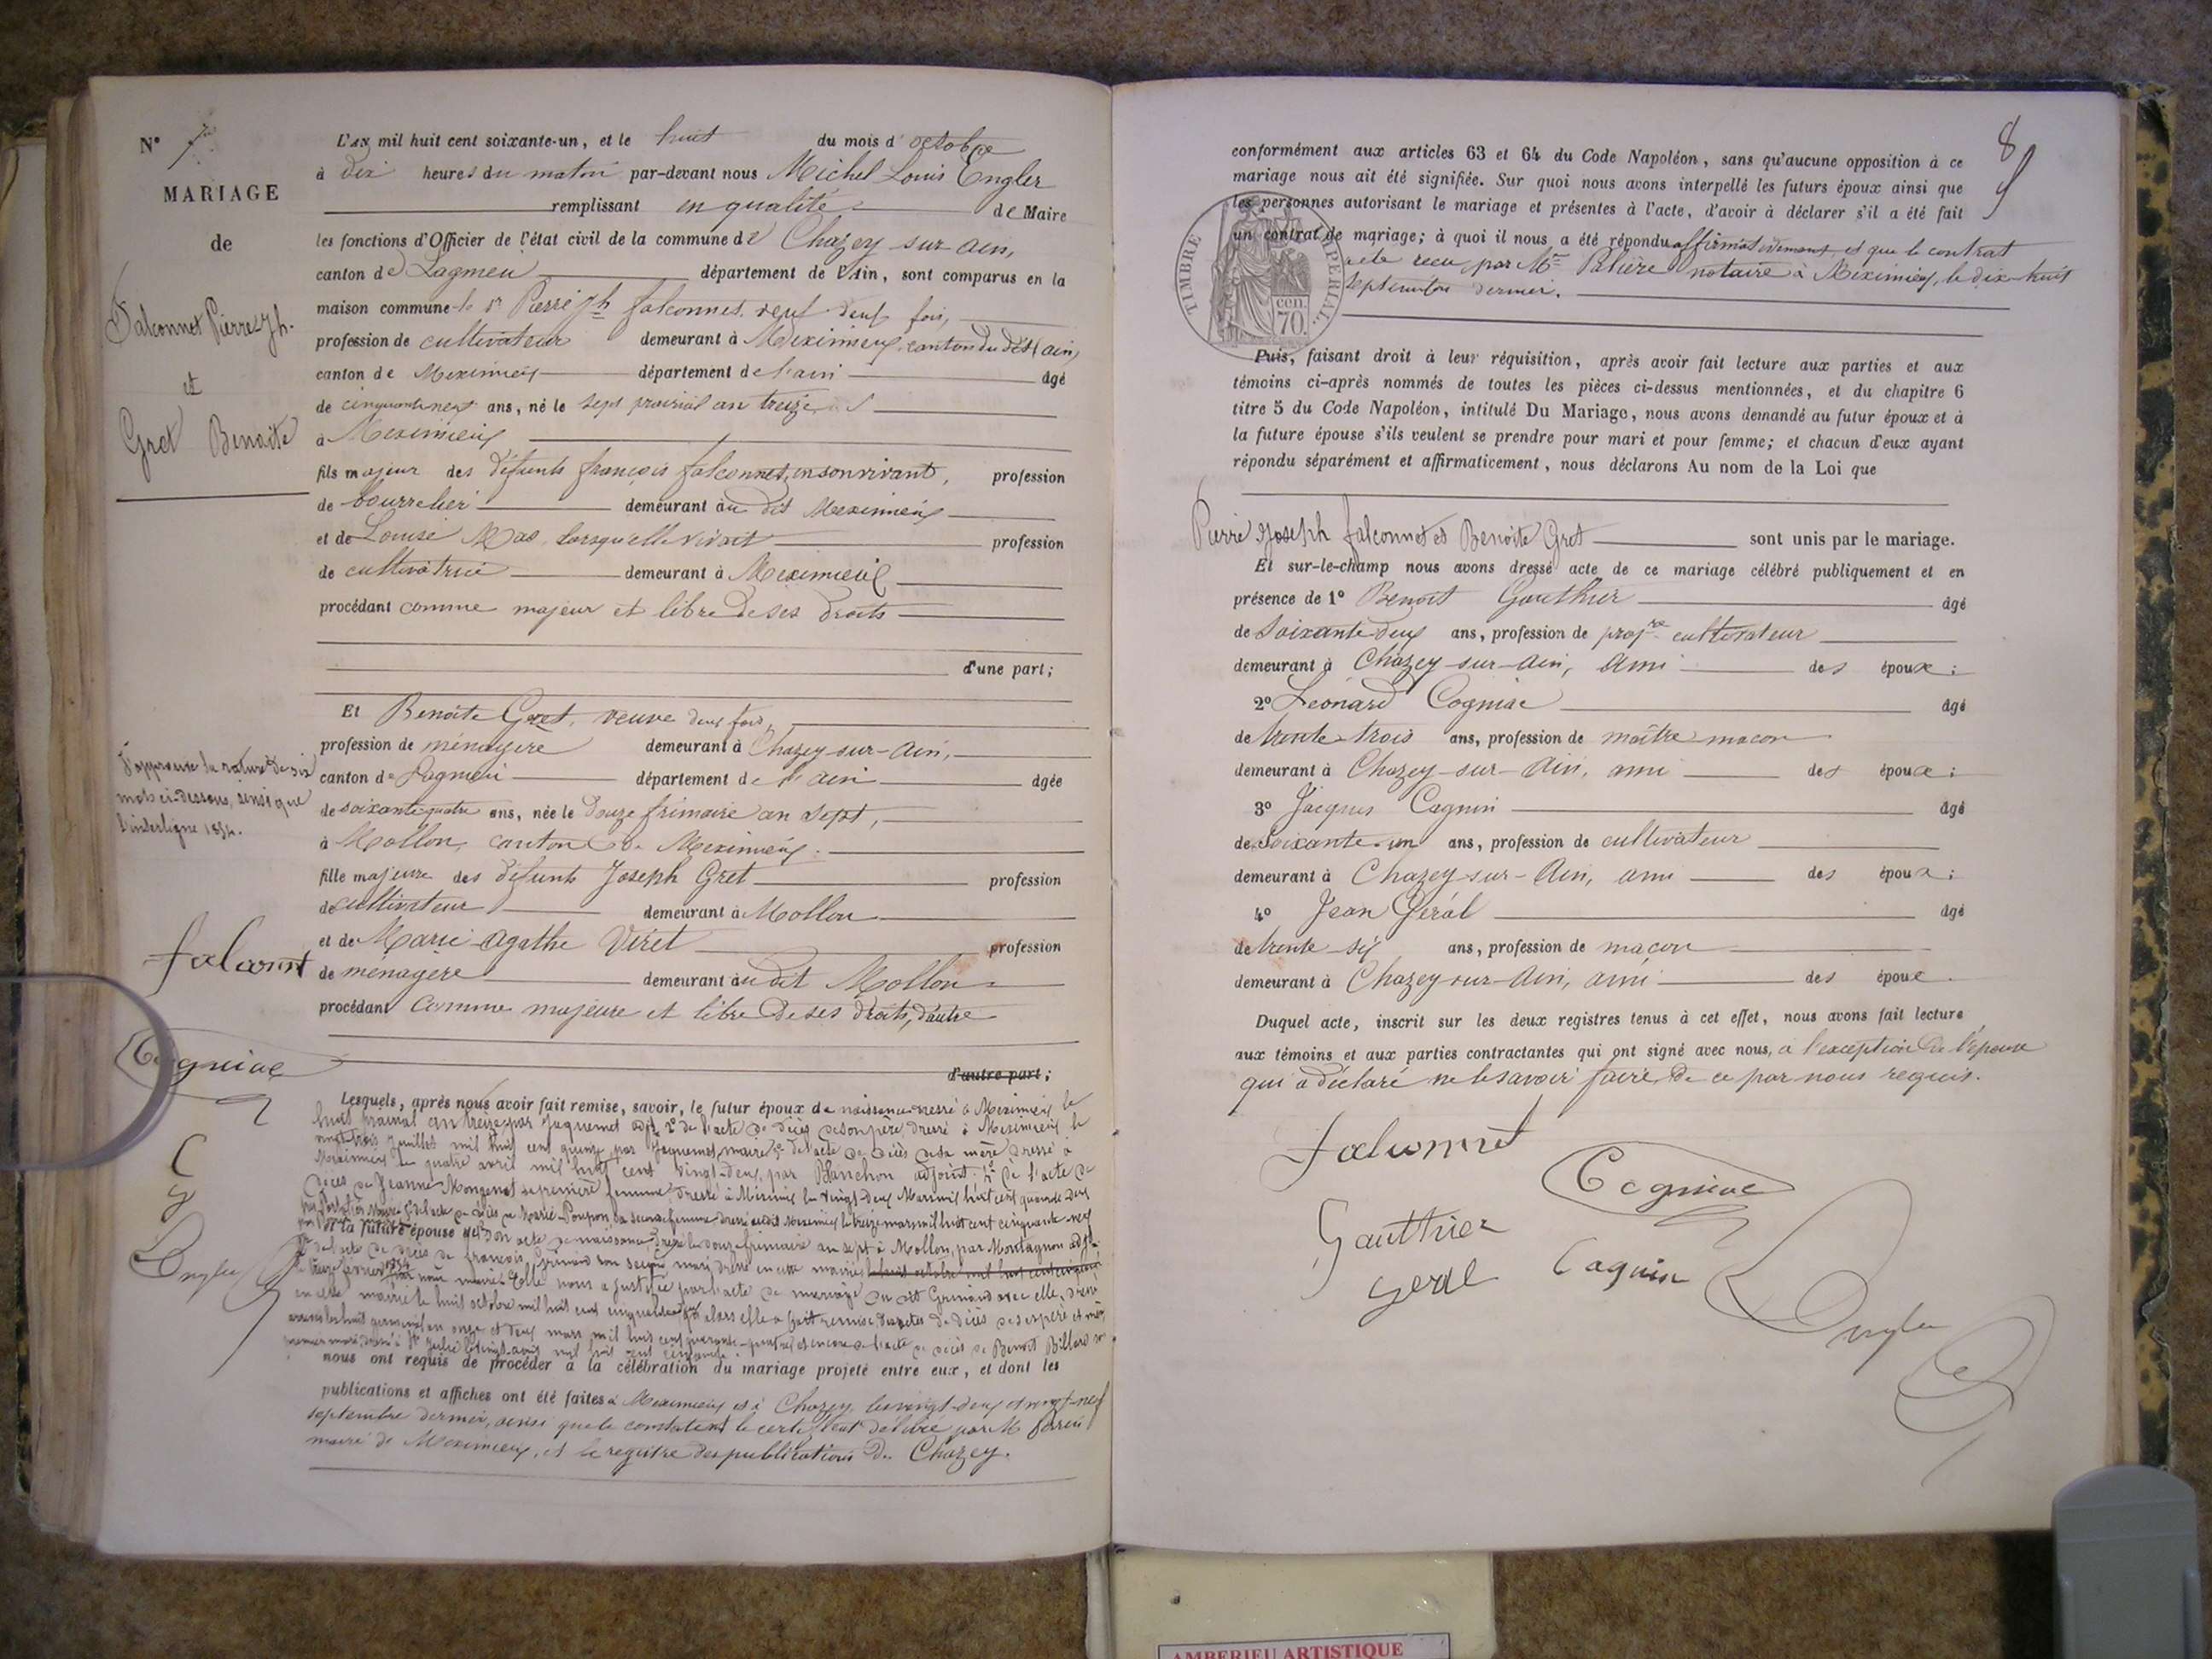 N° 7
MARIAGE
de
Falconnet Pierre Jh.
et
Gret Benoite
L'AN mil huit cent soixante-un, et le huit du mois d'octobre
à dix heures du matin par-devant nous Michel Louis Engler
remplissant en qualité de Maire
les fonctions d'Officier de l'état civil de la commune de Chazey-sur-Ain,
canton de Lagnieu département de l'Ain, sont comparus en la
maison commune le sr Pierre Jh falconnet, veuf deux fois,
profession de cultivateur demeurant à Meximieux, canton du dit (ain)
canton de Meximieux département de l'ain âgé
de cinquante-neuf ans, né le sept prairial an treize
à Meximieux
fils majeur des défunts françois falconnet, en son vivant, profession
de bourrelier demeurant au dit Meximieux
et de Louise Mas, lorsqu'elle vivait profession
de cultivatrice demeurant à Meximieux
procédant comme majeur et libre de ses droits
d'une part;
Et Benoite Gret, veuve deux fois,
profession de ménagère demeurant à Chazey-sur-Ain,
canton de Lagnieu département de l'ain âgée
de soixante-quatre ans, née le douze frimaire an sept,
à Mollon, canton de Meximieux.
fille majeure des défunts Joseph Gret profession
de cultivateur demeurant à Mollon
et de Marie-Agathe Viret profession
de ménagère demeurant au dit Mollon
procédant comme majeure et libre de ses droits, d'autre
d'autre part;
J'approuve la rature de six
mots ci-dessous, ainsi que
l'interligne 1854.
falconnet
Cogniac
C
g
Engler
Lesquels, après nous avoir fait remise, savoir, le futur époux de naissance dressé à Meximieux le
huit prairial an treize par Jaquemet adjt 2° de l'acte de décès de son père, dressé à Meximieux le
vingt-trois juillet mil huit cent quinze par Jaquemet, maire 3° de l'acte de décès de sa mère dressé à
Meximieux le quatre avril mil huit cent vingt-deux, par Blanchon adjoint; 4° de l'acte de
décès de Jeanne Mongenet sa première femme, dressé à Meximieux le vingt-deux Mars mil huit cent quarante deux
de l'acte de décès de Marie Poupon, sa seconde femme dressé audit Meximieux le treize mars mil huit cent cinquante-neuf
Et la future épouse de son acte de naissance, dressé le douze frimaire an sept à Mollon, par Montagnon adjt.
de l'acte de décès de françois Grimand son second mari, dressé en cette mairie le huit octobre mil huit cent cinquante
le treize février 1854 par nous maire. Elle nous a justifié par l'acte de mariage du dit Grimand avec elle, dressé
en cette mairie le huit octobre mil huit cent cinquante-deux qu'alors elle a fait remise des actes de décès de ses père et mère
les huit germinal an onze et deux mars mil huit cent quarante-quatre et encore de l'acte de décès de Benoit Billard son
premier mari, dressé à St Julie le vingt avril mil huit cent cinquante
nous ont requis de procéder à la célébration du mariage projeté entre eux, et dont les
publications et affiches ont été faites à Meximieux et à Chazey, les vingt-deux et vingt-neuf
septembre dernier, ainsi que le constatent le certificat délivré par M
maire de Meximieux, et le registre des publications de Chazey.
8
conformément aux articles 63 et 64 du Code Napoléon, sans qu'aucune opposition à ce
mariage nous ait été signifiée. Sur quoi nous avons interpellé les futurs époux ainsi que
les personnes autorisant le mariage et présentes à l'acte, d'avoir à déclarer s'il a été fait
un contrat de mariage; à quoi il nous a été répondu affirmativement et que le contrat
a été reçu par Me Palière notaire à Meximieux, le dix-huit
septembre dernier.
TIMBRE IMPERIAL
cen.
70.
Puis, faisant droit à leur réquisition, après avoir fait lecture aux parties et aux
témoins ci-après nommés de toutes les pièces ci-dessus mentionnées, et du chapitre 6
titre 5 du Code Napoléon, intitulé Du Mariage, nous avons demandé au futur époux et à
la future épouse s'ils veulent se prendre pour mari et pour femme; et chacun d'eux ayant
répondu séparément et affirmativement, nous déclarons Au nom de la Loi que
Pierre Joseph falconnet et Benoite Gret sont unis par le mariage.
Et sur-le-champ nous avons dressé acte de ce mariage célébré publiquement et en
présence de 1° Benoit Gauthier âgé
de soixante-deux ans, profession de propre cultivateur
demeurant à Chazey-sur-Ain, ami des époux;
2° Léonard Cogniac âgé
de trente-trois ans, profession de maître maçon
demeurant à Chazey-sur-Ain, ami des époux;
3° Jacques Cagnin âgé
de Soixante-un ans, profession de cultivateur
demeurant à Chazey-sur-Ain, ami des époux;
4° Jean Géral âgé
de trente-six ans, profession de maçon
demeurant à Chazey-sur-Ain, ami des époux.
Duquel acte, inscrit sur les deux registres tenus à cet effet, nous avons fait lecture
aux témoins et aux parties contractantes qui ont signé avec nous, à l'exception de l'épouse
qui a déclaré ne le savoir faire, de ce par nous requis.
falconnet
Cogniac
Gauthier
Cagnin
geral
Engler
AMBERIEU ARTISTIQUE